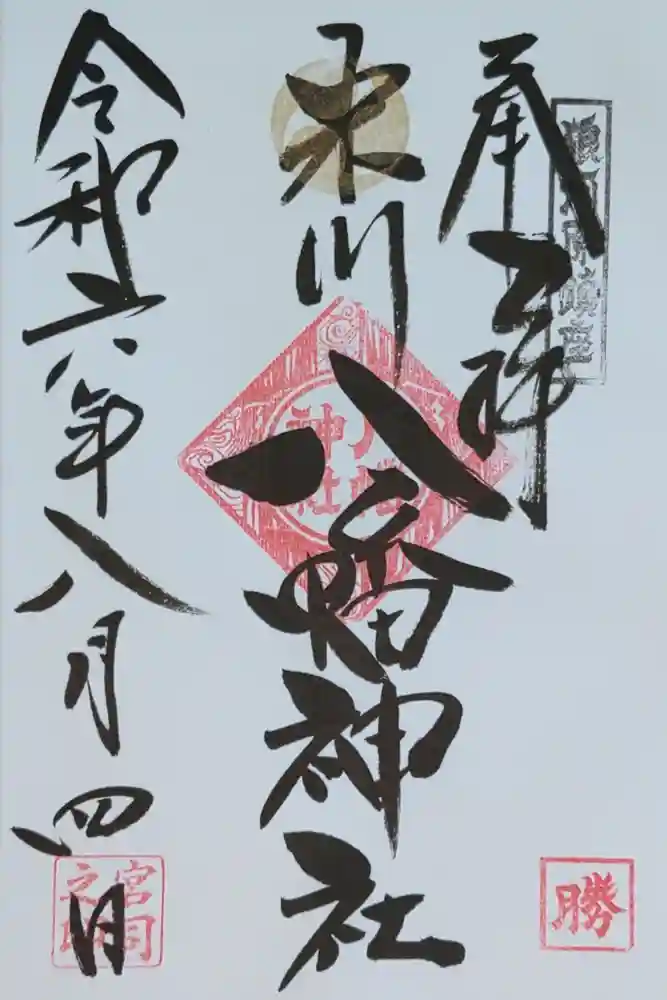 奉拝
鎮座
川八幡神社
八幡
神社
令和六年八月四日
宮司
之印
勝